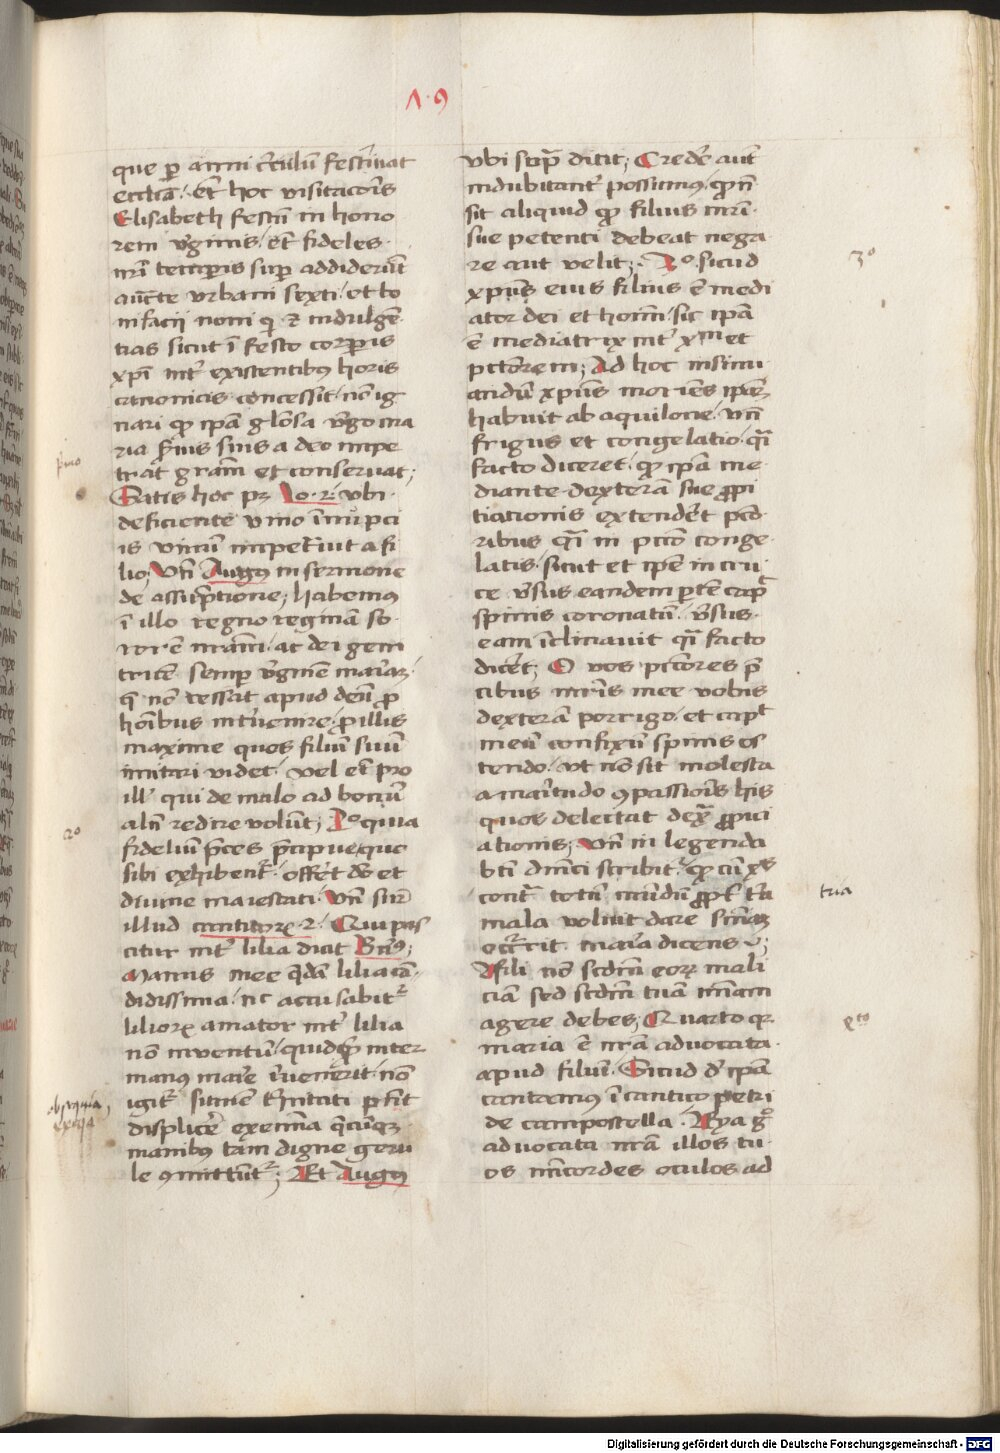 Λ · 9
que p̱ anni c̄culū festīvat
eccl̄ia · et̄ hoc visitacōis
Elisabeth festū in hono
rem v̄ginis / et̄ fideles ·
nr̄i temp̱is sup̱ addiderūt
auc̄te urbani sexti / et bo
nifacij noni qͥ ⁊ indulgē
tias sicut ī festo corp̱is
xp̄i int̓ existentibus horis
canonicis concessit / nō ig
nari ꝙ ip̄a glōsa v̄go ma
ria p̄ius suis a deo impe
trat gr̄am et conservat ;
primo
Satis hoc pꝫ Io · 2 · ubi ·
deficiente vino ī nupci
is vinū impetrīuit a fi
lio ; Vn̄ Augꝰ in sermone
de assūptione ; habemus
ī illo regno reginā so
rorē nr̄am / ac dei geni
tricē semp̱ v̄ginē mariaꝫ
q̄ nō cessat apud deū ꝓ
hoībus int̓venire / ꝓ illis
maxime quos filiū suū
imitari videt · vel et̄ pro
ill̓ qui de malo ad bonū
aln̄ redire volūt ; 2º quia
2º
fideliū p̄ces p̄cipue / que
sibi exhibent̓ / offert deo et
diuine maiestati · Vn̄ sup̱
illud canticoꝝ 2 · Qui pas
citur int̓ lilia dicit Bern̄ꝰ ;
Manus mee q̄dā lilia cā
didissima / nc̄ accusabit̓
lilioꝝ amator int̓ lilia
non inventū / quidq̄ inter
manus marie īvenerit / nō
igit̓
obsequia,
exenia
displicē exennia q̄cūqꝫ
manibus tam digne geru
le ꝯmittūt̓ ; Et Augꝰ
ubi sup̱ dicit ; Credē aut̄
indubitant̓ possumus / ꝙ nō
sit aliquid ꝙ filius mr̄i
sue petenti debeat nega
re aut velit ; 3º sicud
3º
xp̄us eius filius ē medi
ator dei et hoīm / sic ip̄a
ē mediatrix int̓ xᵐ et
pctōrem ; Ad hoc insinu
andū xp̄us moriēs ip̄aꝫ
habuit ab aquilone / vn̄
frigus et congelatio / q̄i
facto diceret / ꝙ ip̄a me
diante dexterā sue ꝓpi
tiationis extendēt pctō
ribus q̄i in pctō conge
latis / sicut et ip̄e in cru
ce v̄sus eandem ptē capᵗ
spinis coronatū · v̄sus ·
eam īclinauit q̄i facto
dicēt ; O vos pctōres p̄
cibus mr̄is mee vobis
dexterā porrigo / et capᵗ
meū confixū spinis os
tendo / ut nō sit molesta
amaritudo ꝯpassionis his
quos delectat dexᵃ ꝓpici
ationis ; Vn̄ in legenda
bt̄i dn̄ici scribit̓ / ꝙ cū xꝰ
cont̓ totū mūdū ꝓpt̓ t̓a
tria
mala voluit dare sn̄iaꝫ
occ̓rit maria dicens ;
Fili nō scdm eoꝝ mali
ciam sed scdm tuā mīam
agere debes ; Quarto qꝛ
4to
maria ē nr̄a advocata
apud filiū · Sicud de ip̄a
cantamus ī cantico petri
de compostella · Eya gͦ
advocata nr̄a illos tu
os mīcordes oculos ad
Digitalisierung gefördert durch die Deutsche Forschungsgemeinschaft - DFG